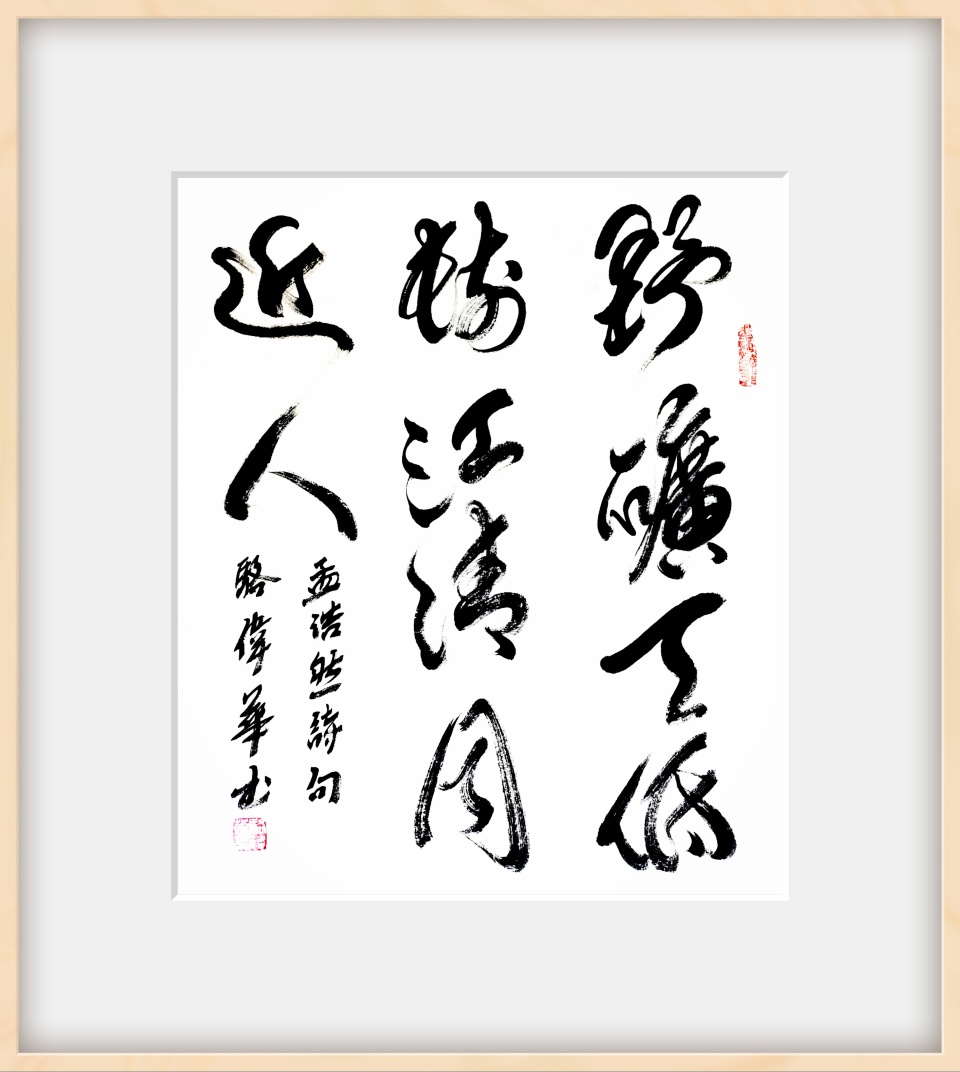 野礦天低
樹江清月
近人
孟浩然詩句
駱偉華書